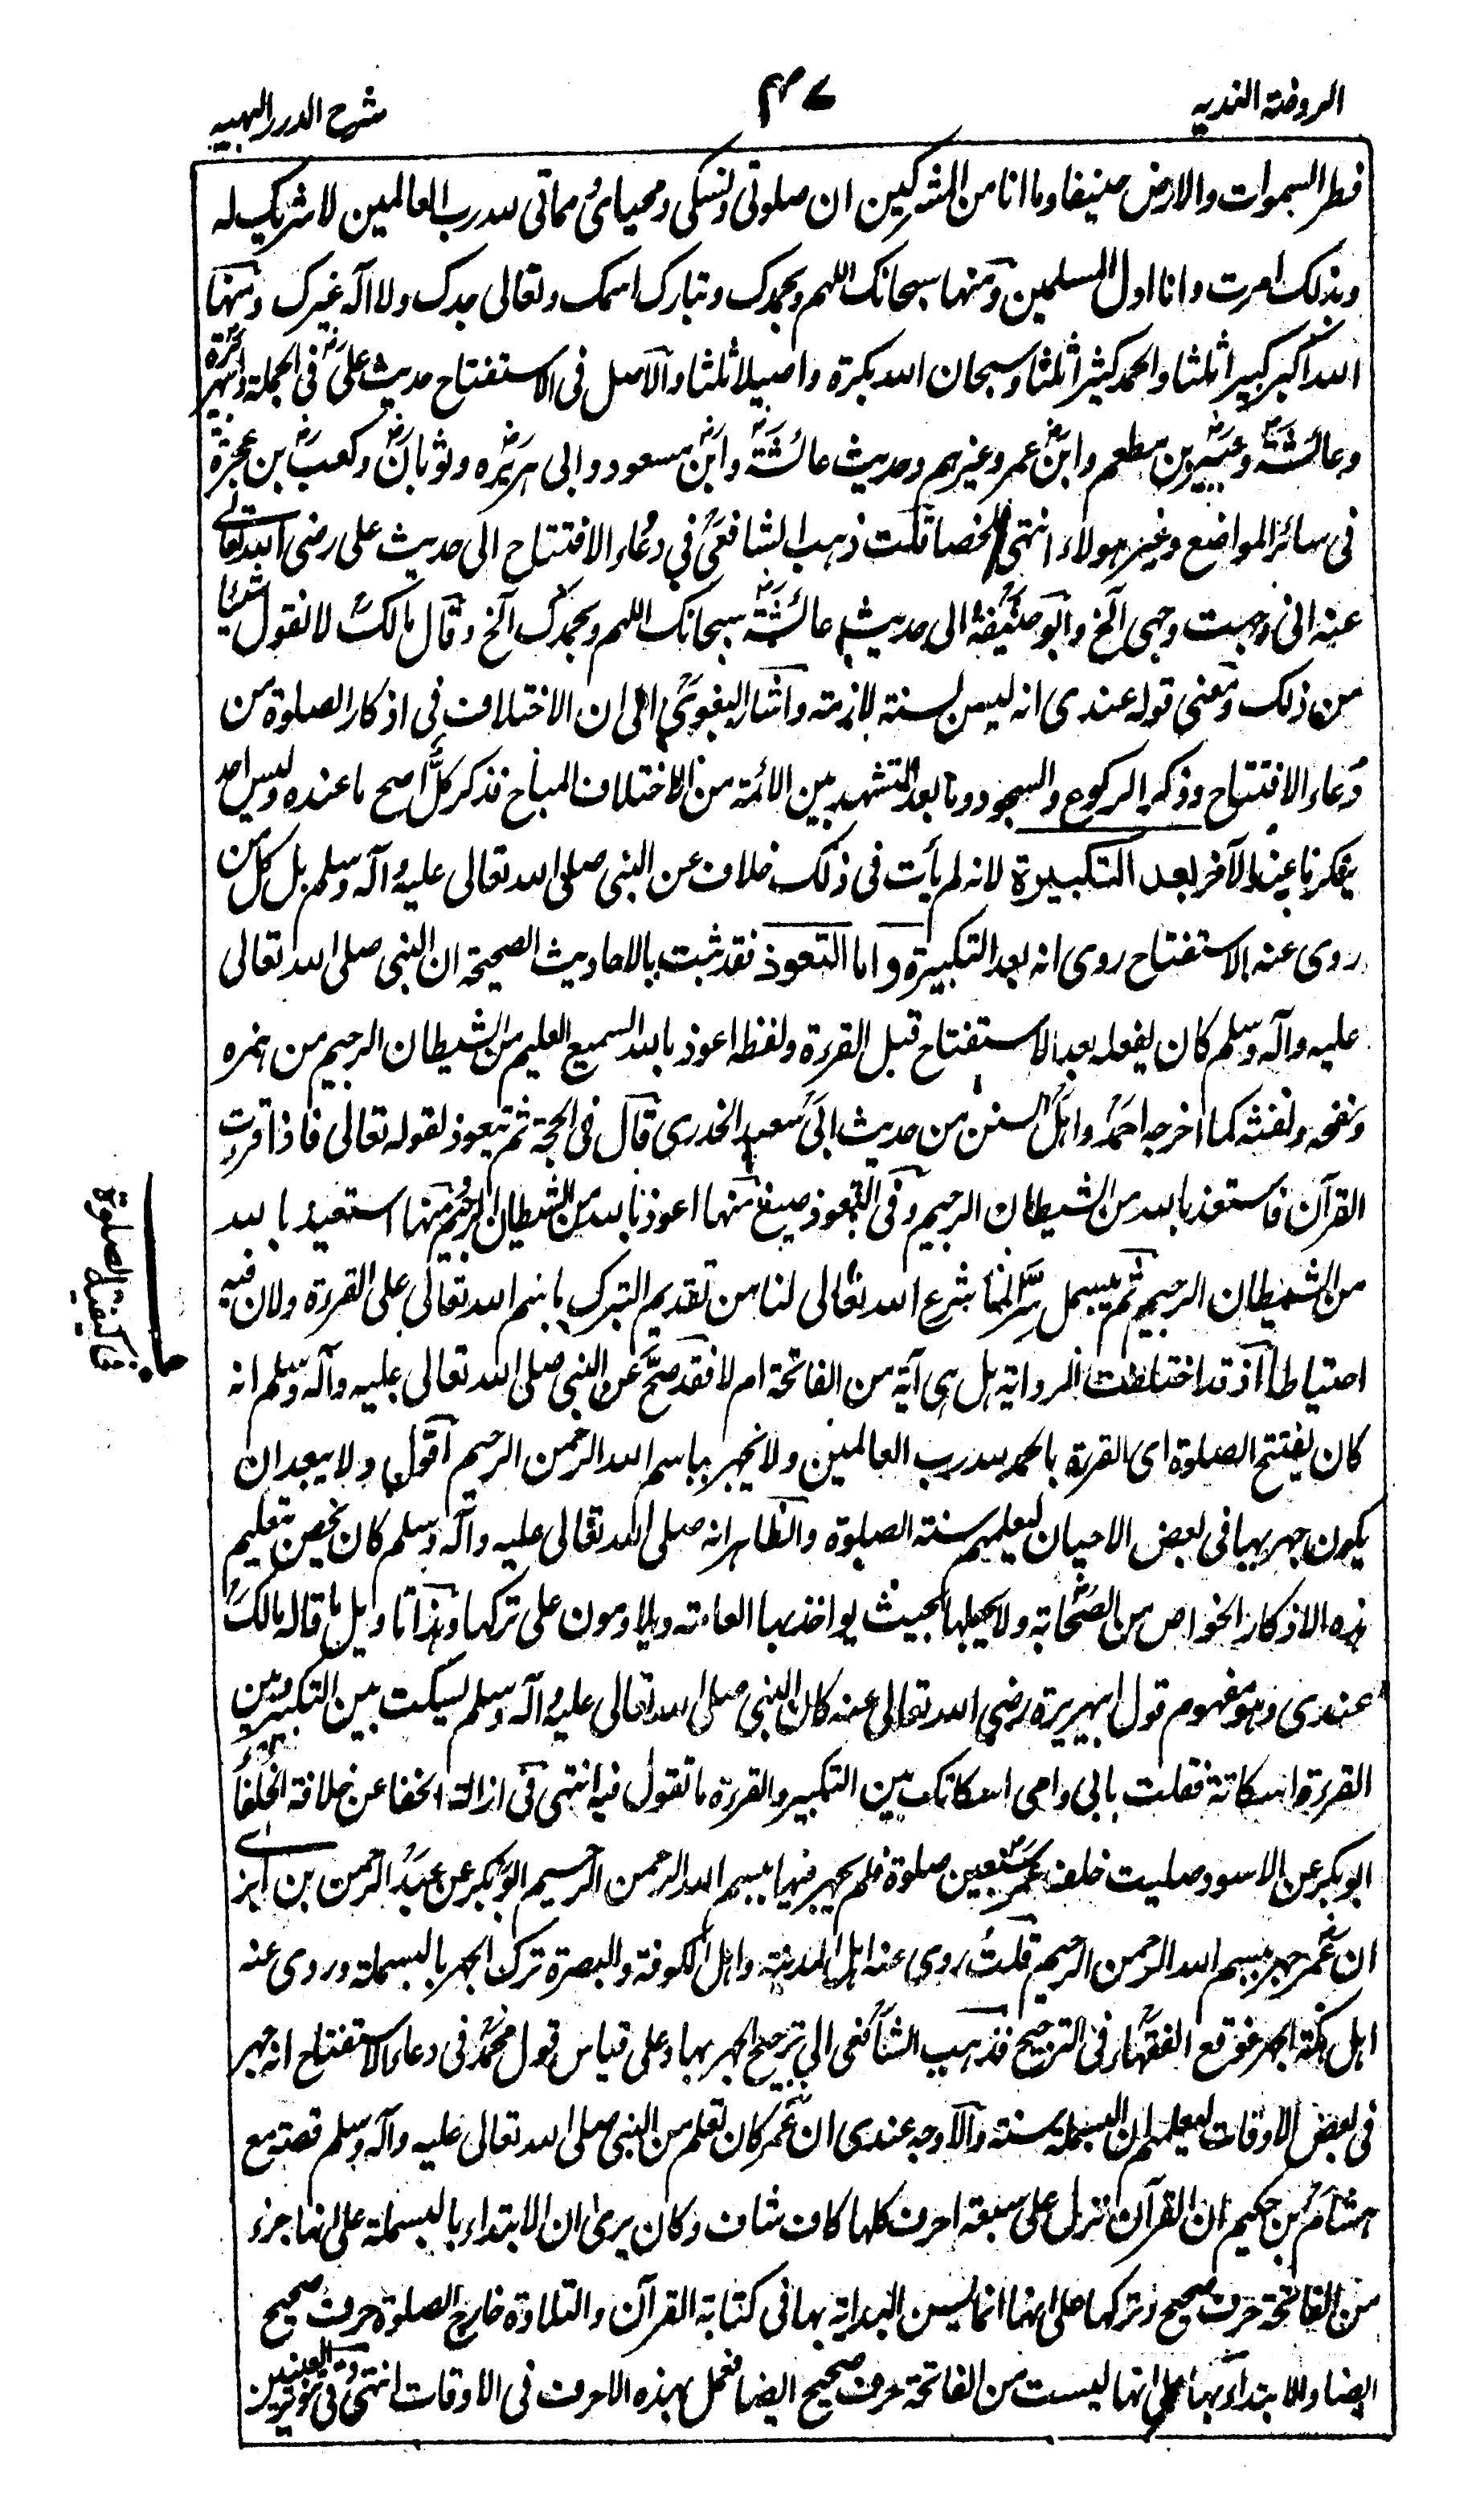 الروضة الندیہ
۴۷
شرح الدرر البہیہ
فطر السموات والارض حنیفا وما انا من المشرکین ان صلوتی ونسکی ومحیای ومماتی للہ رب العالمین لا شریک لہ
وبذلک امرت وانا اول المسلمین ومنہا سبحانک اللہم وبحمدک وتبارک اسمک وتعالی جدک ولا الہ غیرک ومنہا
اللہ اکبر کبیرا ثلثا والحمد کثیرا ثلثا وسبحان اللہ بکرۃ واصیلا ثلثا والاصل فی الاستفتاح حدیث علی رض فی الجملۃ وابی ہریرۃ
وعائشۃ وجبیر بن مطعم وابن عمر وغیرہم وحدیث عائشۃ وابن مسعود وابی ہریرہ وثوبان وکعب بن عجرۃ
فی سائر المواضع وغیر ہولاء انتہی ملخصا قلت ذہب الشافعی فی دعاء الافتتاح الی حدیث علی رضی اللہ تعالی
عنہ انی وجہت وجہی الخ وابو حنیفۃ الی حدیث عائشۃ سبحانک اللہم وبحمدک الخ وقال مالک لا نقول شیئا
من ذلک ومعنی قولہ عندی انہ لیس بسنۃ لازمتہ واشار البغوی الی ان الاختلاف فی اذکار الصلوۃ من
دعاء الافتتاح وذکر الرکوع والسجود وما بعد التشہد بین الائمۃ من الاختلاف المباح فذکر کل اصح ما عندہ ولیس احد
ینکر ما عند الآخر بعد التکبیرۃ لانہ لم یأت فی ذلک خلاف عن النبی صلی اللہ تعالی علیہ وآلہ وسلم بل کل من
روی عنہ الاستفتاح روی انہ بعد التکبیرۃ واما التعوذ فقد ثبت بالاحادیث الصحیحۃ ان النبی صلی اللہ تعالی
علیہ وآلہ وسلم کان یفعلہ بعد الاستفتاح قبل القرءۃ ولفظہ اعوذ باللہ السمیع العلیم من الشیطان الرجیم من ہمزہ
ونفخہ ونفثہ کما اخرجہ احمد واہل السنن من حدیث ابی سعید الخدری قال فی الحجۃ ثم یتعوذ لقولہ تعالی فاذا قرءت
القرآن فاستعذ باللہ من الشیطان الرجیم وفی التعوذ صیغ منہا اعوذ باللہ من الشیطان الرجیم ومنہا استعیذ باللہ
من الشیطان الرجیم ثم یبسمل سرا لما شرع اللہ تعالی لنا من تقدیم التبرک باسم اللہ تعالی علی القرءۃ ولان فیہ
احتیاطا اذ قد اختلطت الروایۃ ہل ہی آیۃ من الفاتحۃ ام لا فقد صح عن النبی صلی اللہ تعالی علیہ وآلہ وسلم انہ
کان یفتتح الصلوۃ ای القرءۃ بالحمد للہ رب العالمین ولا یجہر بباسم اللہ الرحمن الرحیم اقول ولا یبعد ان
یکون جہر بہا فی بعض الاحیان لیعلمہم سنۃ الصلوۃ والظاہر انہ صلی اللہ تعالی علیہ وآلہ وسلم کان یخص بتعلیم
ہذہ الاذکار الخواص من الصحابۃ ولا یجعلہا بحیث یواخذ بہا العامتہ ویلاومون علی ترکہا وہذا تاویل ما قالہ مالک
عندی وہو مفہوم قول ابی ہریرۃ رضی اللہ تعالی عنہ کان النبی صلی اللہ تعالی علیہ وآلہ وسلم یسکت بین التکبیر وبین
القرءۃ اسکاتۃ فقلت بابی وامی اسکاتک بین التکبیر والقرءۃ ما تقول فیہ انتہی فی ازالۃ الخفا عن خلافۃ الخلفا
ابوبکر عن الاسود صلیت خلف عمر سبعین صلوۃ فلم یجہر فیہا ببسم اللہ الرحمن الرحیم ابوبکر عن عبد الرحمن بن ابزی
ان عمر جہر ببسم اللہ الرحمن الرحیم قلت روی عنہ اہل المدینۃ واہل الکوفۃ والبصرۃ ترک الجہر بالبسملۃ وروی عنہ
اہل مکۃ الجہر فوقع الفقہاء فی الترجیح فذہب الشافعی الی ترجیح الجہر بہا وعلی قیاس قول محمد فی دعاء الاستفتاح انہ جہر
فی بعض الاوقات لیعلمہم ان البسملۃ سنۃ والاوجہ عندی ان عمر کان تعلم من النبی صلی اللہ تعالی علیہ وآلہ وسلم قصتہ مع
ہشام بن حکیم ان القرآن انزل علی سبعۃ احرف کلہا کاف شاف وکان یری ان الابتداء بالبسملۃ علی انہا جزء
من الفاتحۃ حرف صحیح وترکہا علی انہا انما یسن البدایۃ بہا فی کتابۃ القرآن والتلاوۃ خارج الصلوۃ حرف صحیح
ایضا والابتداء بہا علی انہا لیست من الفاتحۃ حرف صحیح ایضا فعمل بہذہ الاحرف فی الاوقات انتہی وفی تنویر العینین